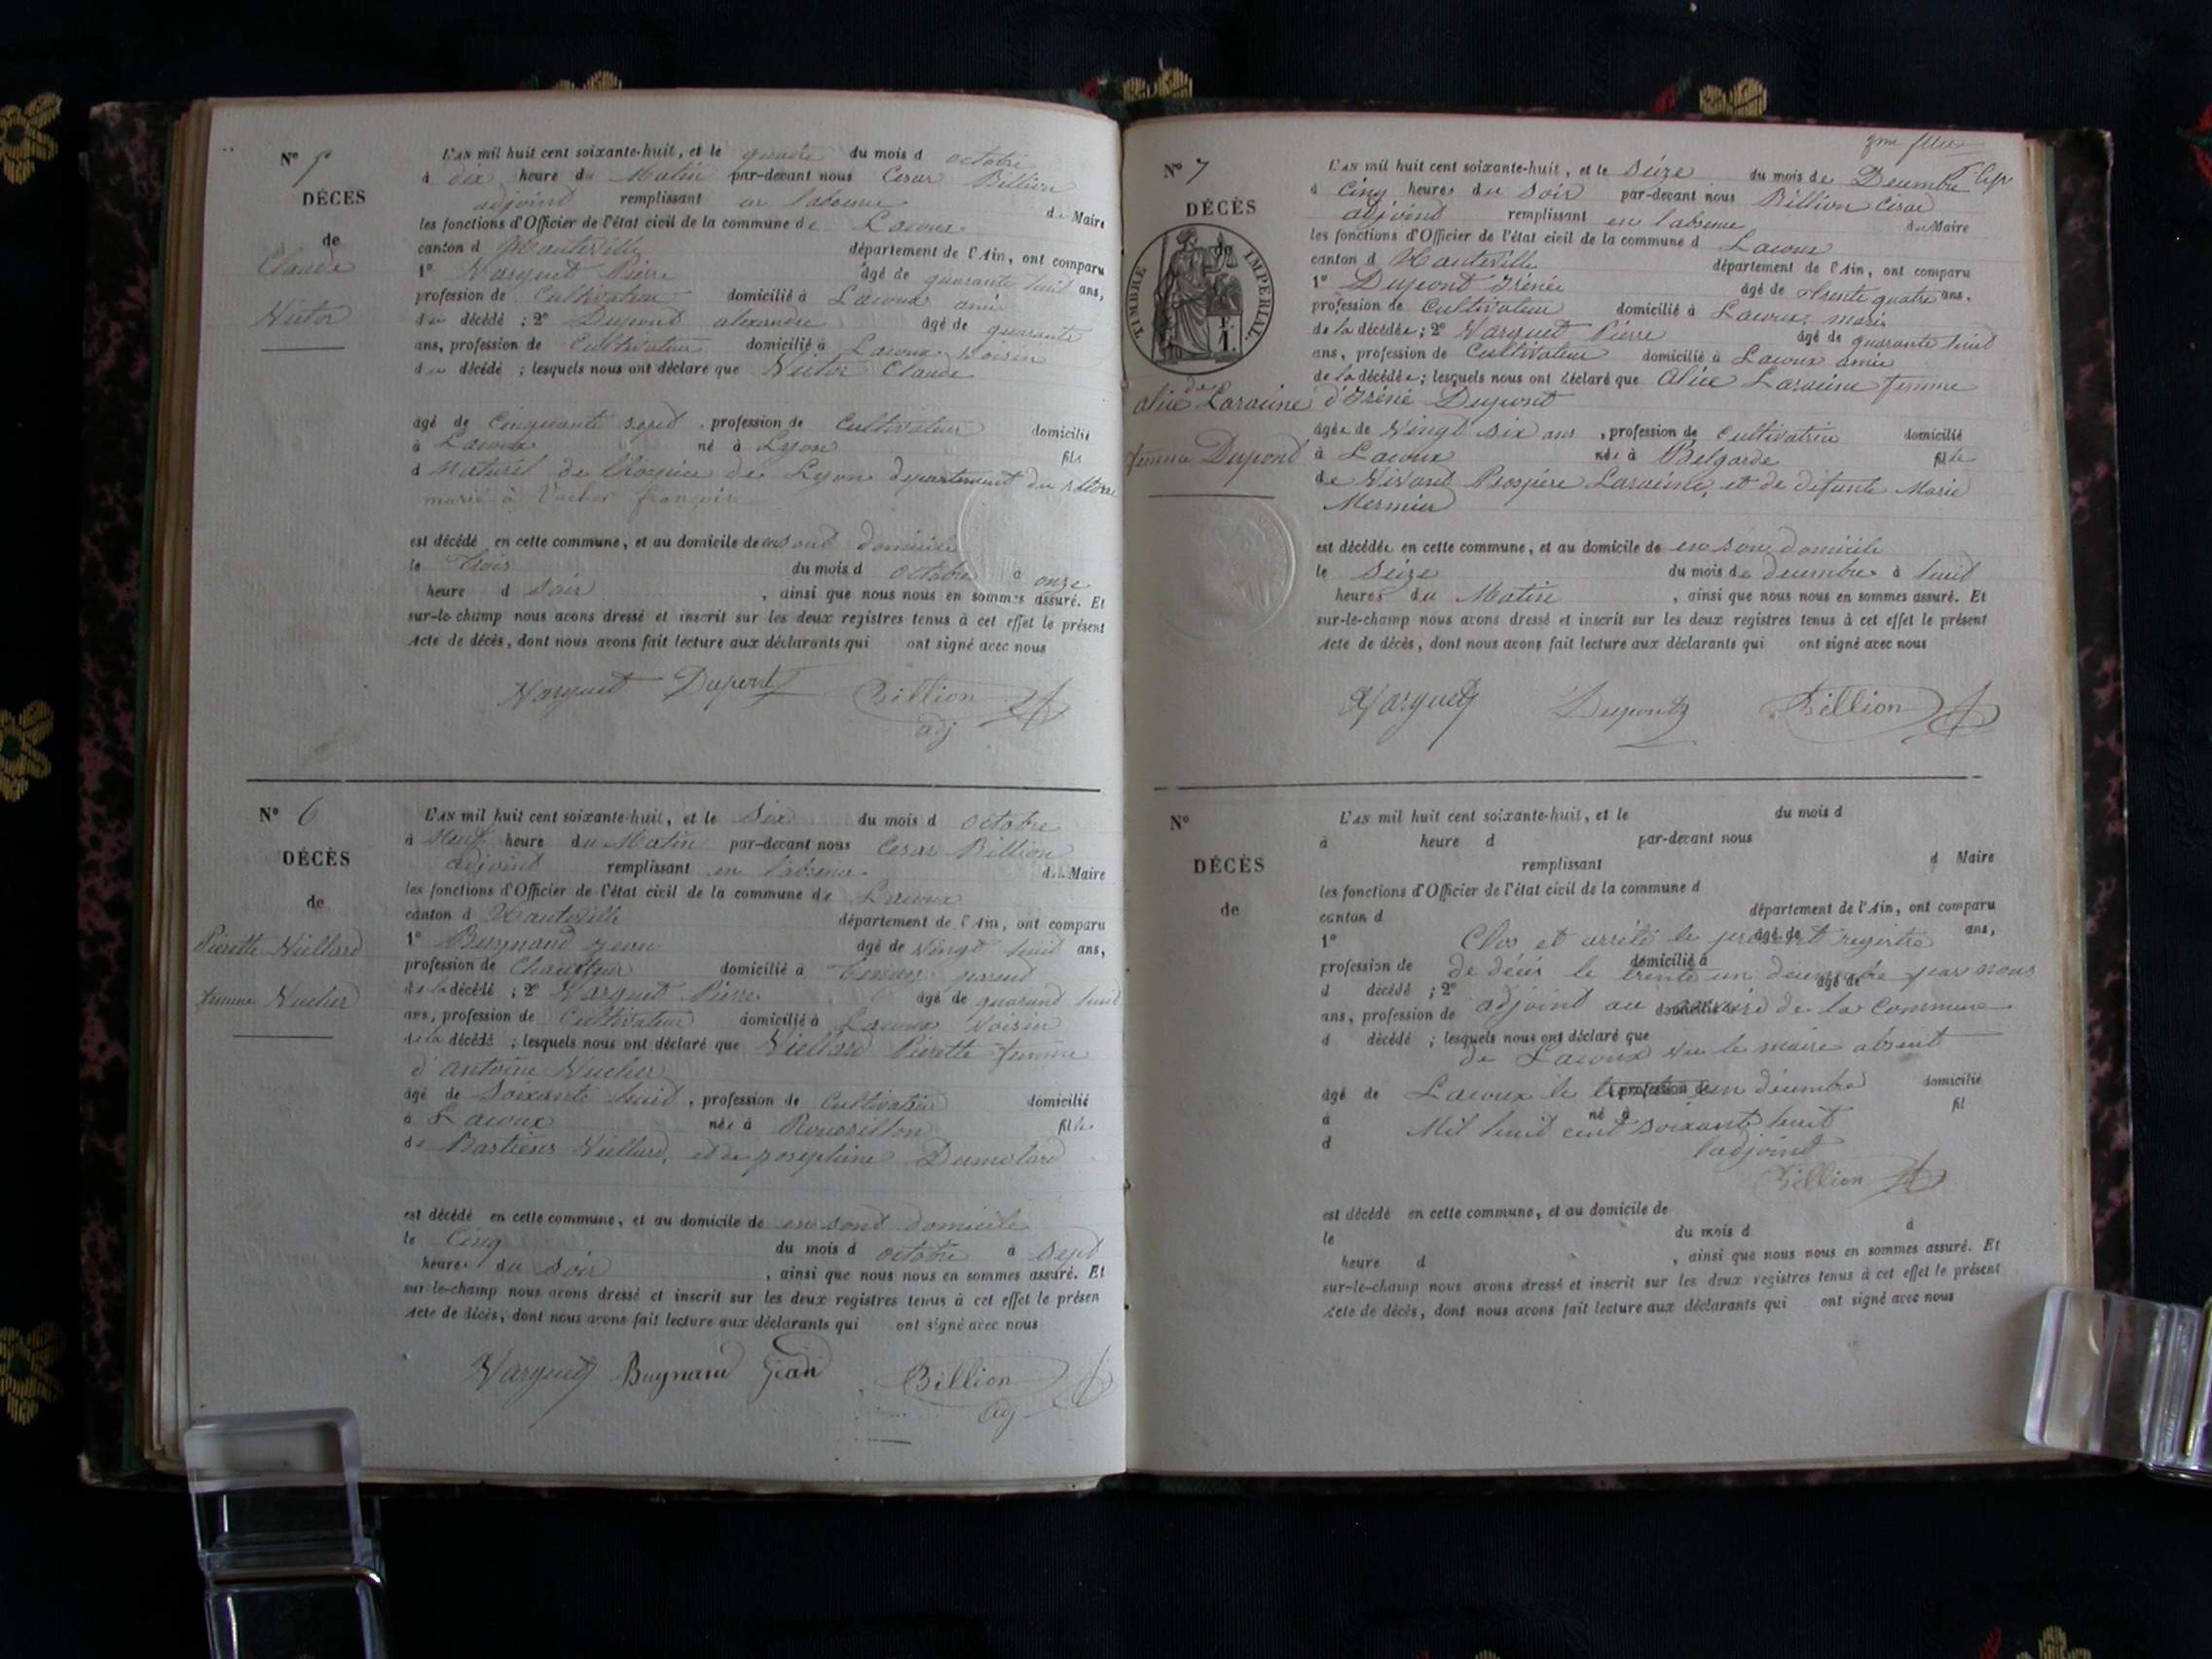 N° 5
DÉCÈS
de
Claude
Victor
L'AN mil huit cent soixante-huit, et le quatre du mois d octobre
à dix heure du Matin par-devant nous Cesar Billion
adjoint remplissant en l'absence du Maire
les fonctions d'Officier de l'état civil de la commune de Lacoux
canton d Hauteville département de l'Ain, ont comparu
1° Varquet Pierre âgé de quarante huit ans,
profession de Cultivateur domicilié à Lacoux amie
du décédé ; 2° Dupond alexandre âgé de quarante
ans, profession de Cultivateur domicilié à Lacoux voisin
du décédé ; lesquels nous ont déclaré que Victor Claude
âgé de Cinquante sept , profession de Cultivateur domicilié
à Lacoux né à Lyon fils
d naturel de l'hospice de Lyon departement du Rhone
marié à françoise
est décédé en cette commune, et au domicile de en sont domicile
le trois du mois d octobre à onze
heure d soir , ainsi que nous nous en sommes assuré. Et
sur-le-champ nous avons dressé et inscrit sur les deux registres tenus à cet effet le présent
Acte de décès, dont nous avons fait lecture aux déclarants qui ont signé avec nous
Varguet Dupont Billion
adj
N° 6
DÉCÈS
de
Pierette Viellard
femme Vucher
L'AN mil huit cent soixante-huit, et le Six du mois d octobre
à Neuf heure du Matin par-devant nous Cesar Billion
adjoint remplissant en l'absence du Maire
les fonctions d'Officier de l'état civil de la commune de Lacoux
canton d Hauteville département de l'Ain, ont comparu
1° Buynand Jean âgé de vingt huit ans,
profession de Chauffeur domicilié à parent
de la décédé ; 2° Varguet Pierre âgé de quarand huit
ans, profession de Cultivateur domicilié à Lacoux Voisin
de la décédé ; lesquels nous ont déclaré que Viellard Pierette femme
d'antoine Vucher
âgé de Soixante huit , profession de Cultivatrice domicilié
à Lacoux née à Roussillon fille
de Bastiens Viellard, et de Josephine Dumolard
est décédé en cette commune, et au domicile de en sont domicile
le Cinq du mois d octobre à Sept
heure du Soir , ainsi que nous nous en sommes assuré. Et
sur-le-champ nous avons dressé et inscrit sur les deux registres tenus à cet effet le présen
Acte de décès, dont nous avons fait lecture aux déclarants qui ont signé avec nous
Varguet Buynand Jean Billion
adj
N° 7
DÉCÈS
de
TIMBRE IMPERIAL
de
alice Laracine
femme Dupond
L'AN mil huit cent soixante-huit, et le Seize du mois de Decembre
à Cinq heures du Soir par-devant nous Billion Cesar
adjoint remplissant en l'absence du Maire
les fonctions d'Officier de l'état civil de la commune d Lacoux
canton d Hauteville département de l'Ain, ont comparu
1° Dupond Irénée âgé de trente quatre ans,
profession de Cultivateur domicilié à Lacoux, mari
de la décédée ; 2° Varguet Pierre âgé de quarante huit
ans, profession de Cultivateur domicilié à Lacoux amie
de la décédée ; lesquels nous ont déclaré que Alice Laracine femme
d'Iréné Dupont
âgée de Vingt Six ans , profession de Cultivatrice domicilié
à Lacoux née à Belgarde fille
de Vivant Prospère Laracine, et de défunte Marie
Mermier
est décédée en cette commune, et au domicile de en son domicile
le Seize du mois de decembre à huit
heures du Matin , ainsi que nous nous en sommes assuré. Et
sur-le-champ nous avons dressé et inscrit sur les deux registres tenus à cet effet le présent
Acte de décès, dont nous avons fait lecture aux déclarants qui ont signé avec nous
Varguet Dupont Billion
N°
DÉCÈS
de
L'AN mil huit cent soixante-huit, et le du mois d
à heure d par-devant nous
remplissant d Maire
les fonctions d'Officier de l'état civil de la commune d
canton d département de l'Ain, ont comparu
1° âgé de ans,
Clos et arrêté le present registre
profession de domicilié à
de décès le trente un decembre par nous
d décédé ; 2° âgé de
ans, profession de domicilié à
adjoint au maire de la Commune
d décédé ; lesquels nous ont déclaré que
de Lacoux vu le maire absent
âgé de profession de domicilié
Lacoux le trente un décembre
à né à fil
Mil huit cent soixante huit
d
l'adjoint
Billion
est décédé en cette commune, et au domicile de
le du mois d à
heure d , ainsi que nous nous en sommes assuré. Et
sur-le-champ nous avons dressé et inscrit sur les deux registres tenus à cet effet le présent
Acte de décès, dont nous avons fait lecture aux déclarants qui ont signé avec nous